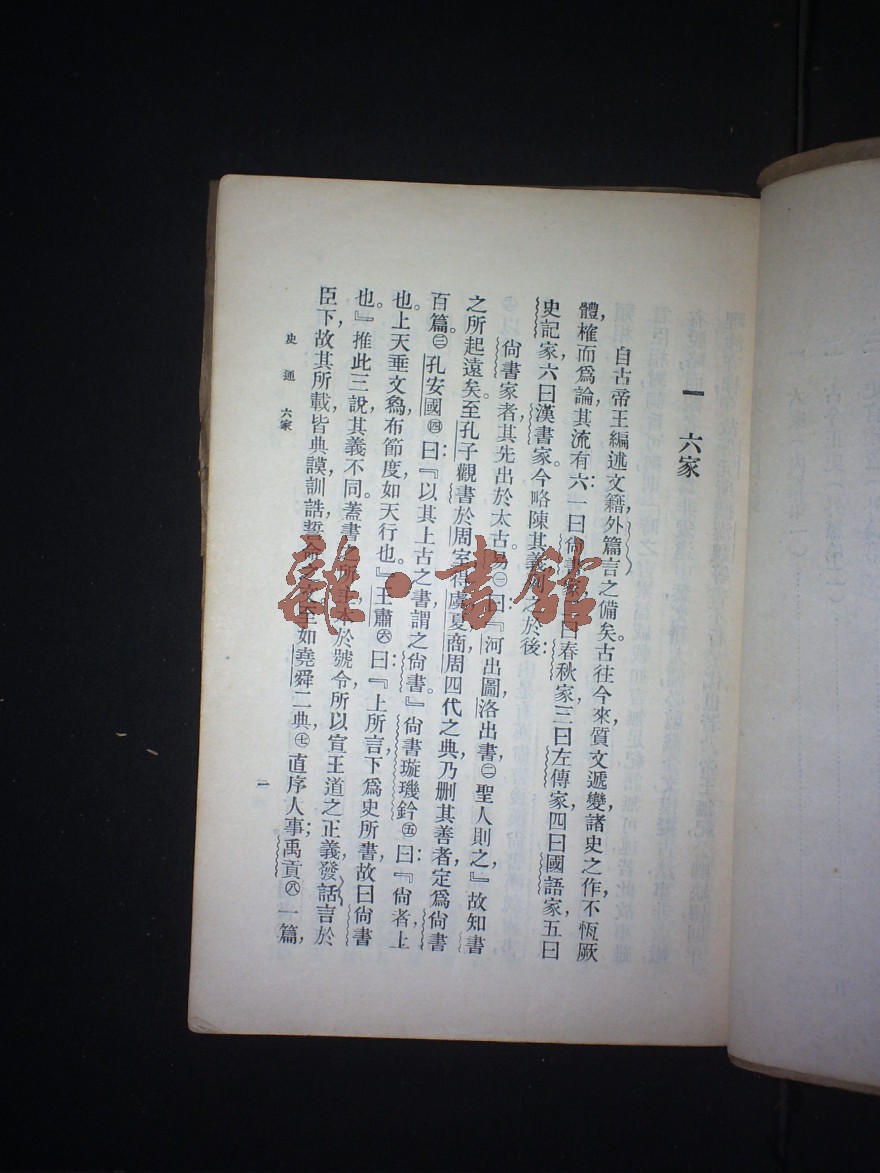 一 六家
自古帝王編述文籍，外篇言之備矣。古往今來，質文遞變，諸史之作，不恆厥
體。榷而爲論，其流有六：一曰尙書家，二曰春秋家，三曰左傳家，四曰國語家，五曰
史記家，六曰漢書家。今略陳其義，列之於後：
尙書家者，其先出於太古。易㊀曰：『河出圖，洛出書，㊁聖人則之。』故知書
之所起遠矣。至孔子觀書於周室，得虞夏商周四代之典，乃删其善者，定爲尙書
百篇。㊂孔安國㊃曰：『以其上古之書，謂之尙書。』尙書璇璣鈐㊄曰：『尙者，上
也。上天垂文，爲布節度，如天行也。』王肅㊅曰：『上所言，下爲史所書，故曰尙書
也。』推此三說，其義不同。蓋書之所主，本於號令，所以宣王道之正義，發話言於
臣下，故其所載，皆典謨訓誥誓命之文。至如堯舜二典，㊆直序人事；禹貢㊇一篇，
史通 六家
一
雜·書館